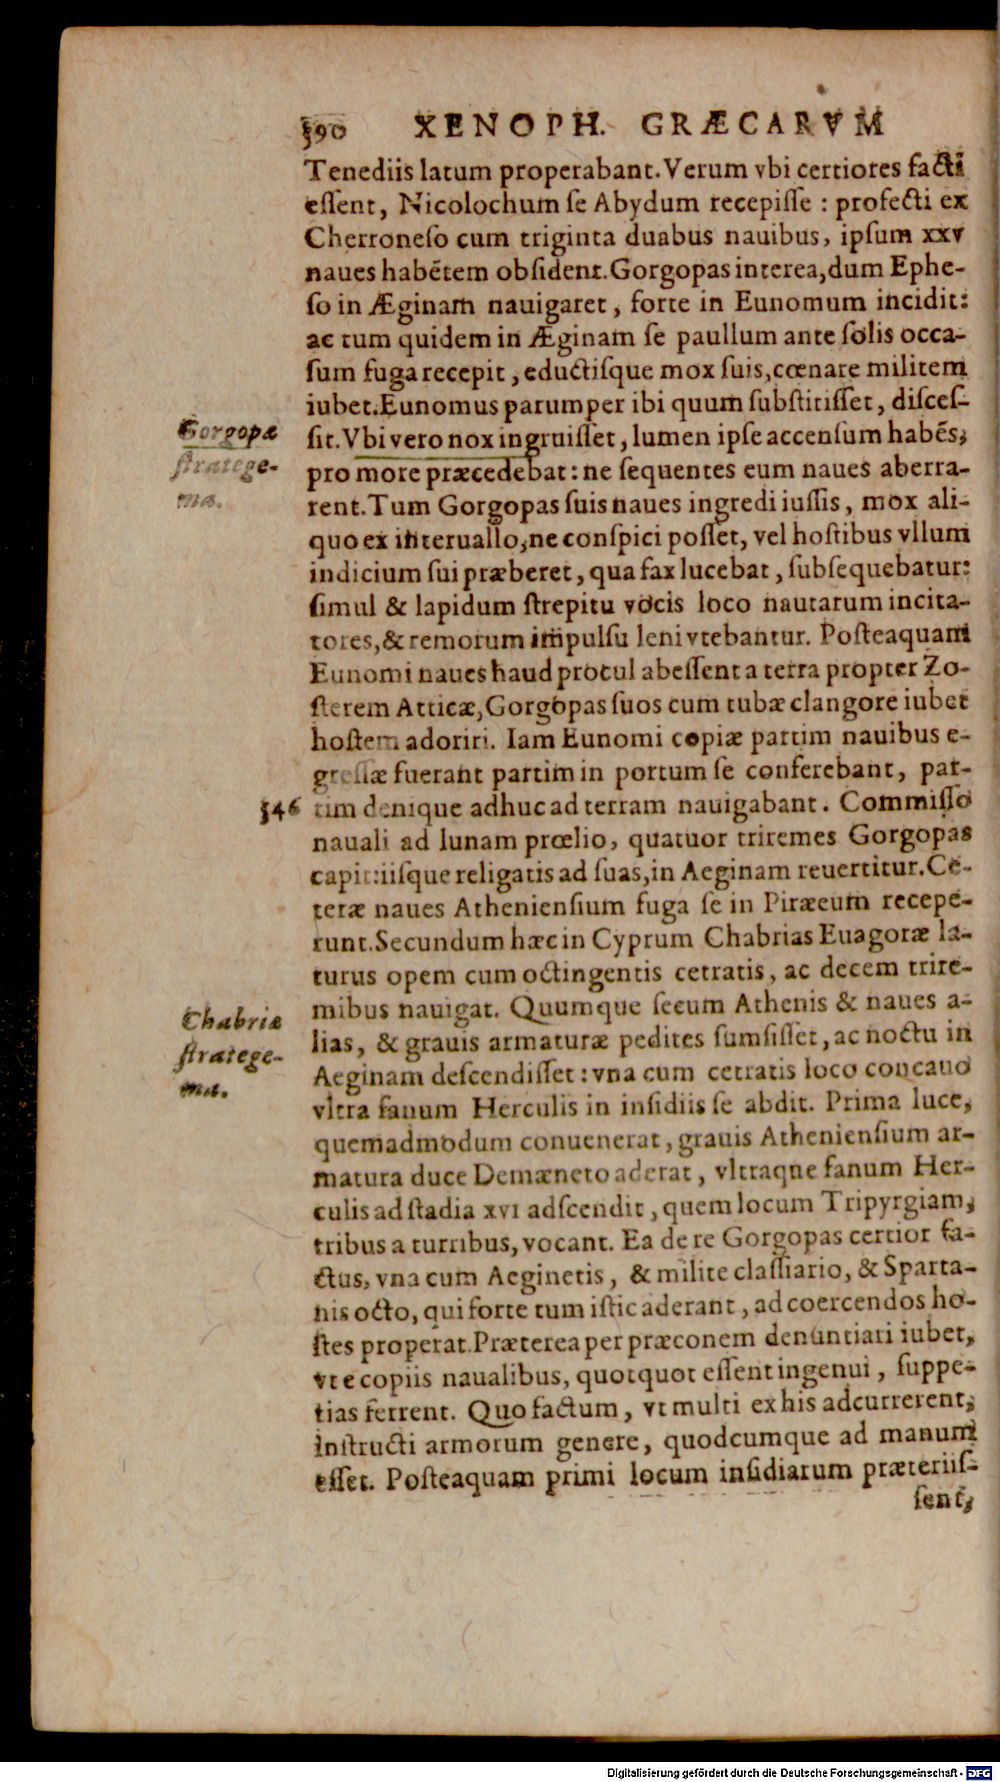 590 XENOPH. GRÆCARVM
Tenediis latum properabant. Verum vbi certiores facti
essent, Nicolochum se Abydum recepisse: profecti ex
Cherroneso cum triginta duabus nauibus, ipsum xxv
naues habẽtem obsident. Gorgopas interea, dum Ephe-
so in Æginam nauigaret, forte in Eunomum incidit:
ac tum quidem in Æginam se paullum ante solis occa-
sum fuga recepit, eductisque mox suis, cœnare militem
iubet. Eunomus parumper ibi quum substitisset, disces-
sit. Vbi vero nox ingruisset, lumen ipse accensum habẽs,
pro more præcedebat: ne sequentes eum naues aberra-
rent. Tum Gorgopas suis naues ingredi iussis, mox ali-
quo ex interuallo, ne conspici posset, vel hostibus vllum
indicium sui præberet, qua fax lucebat, subsequebatur:
simul & lapidum strepitu vocis loco nautarum incita-
tores, & remorum impulsu leni vtebantur. Posteaquam
Eunomi naues haud procul abessent a terra propter Zo-
sterem Atticæ, Gorgopas suos cum tubæ clangore iubet
hostem adoriri. Iam Eunomi copiæ partim nauibus e-
gressæ fuerant partim in portum se conferebant, par-
546 tim denique adhuc ad terram nauigabant. Commisso
nauali ad lunam prœlio, quatuor triremes Gorgopas
capit: iisque religatis ad suas, in Aeginam reuertitur. Ce-
teræ naues Atheniensium fuga se in Piræeum recepe-
runt. Secundum hæc in Cyprum Chabrias Euagoræ la-
turus opem cum octingentis cetratis, ac decem trire-
mibus nauigat. Quumque secum Athenis & naues a-
lias, & grauis armaturæ pedites sumsisset, ac noctu in
Aeginam descendisset: vna cum cetratis loco concauo
vltra fanum Herculis in insidiis se abdit. Prima luce,
quemadmodum conuenerat, grauis Atheniensium ar-
matura duce Demæneto aderat, vltraque fanum Her-
culis ad stadia xvi adscendit, quem locum Tripyrgiam,
tribus a turribus, vocant. Ea de re Gorgopas certior fa-
ctus, vna cum Aeginetis, & milite classiario, & Sparta-
nis octo, qui forte tum istic aderant, ad coercendos ho-
stes properat. Præterea per præconem denuntiari iubet,
vt e copiis naualibus, quotquot essent ingenui, suppe-
tias ferrent. Quo factum, vt multi ex his adcurrerent,
instructi armorum genere, quodcumque ad manum
esset. Posteaquam primi locum insidiarum præteriis-
sent,
Gorgopæ
stratege-
ma.
Chabriæ
stratege-
ma.
Digitalisierung gefördert durch die Deutsche Forschungsgemeinschaft - DFG